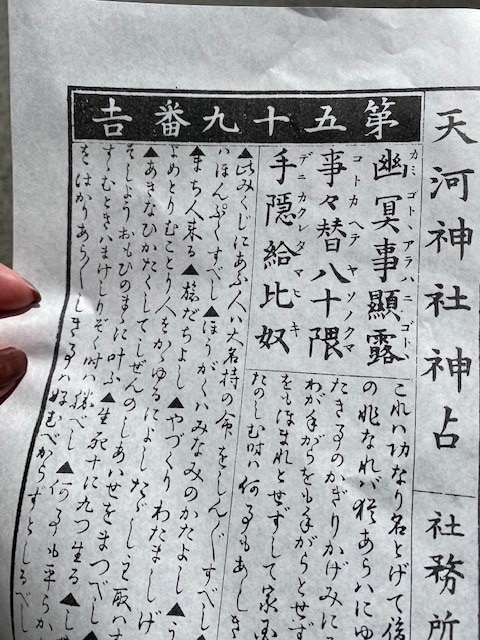 天河神社神占
社務所
第五十九番吉
幽冥事顯露
カミゴト、アラハニゴト、
事々替八十隈
コトカヘテヤソノクマ
手隠給比奴
デニカクレタマヒキ
これハ功なり名とげて後
の兆なれバ猶あらハにゆ
たきるのかぎりかげみに
わが手がらをも手がらとせす
をもほまれとせずして家
たのしむ時ハ何るもあしき
▲此みくじにあふ人ハ大名持の命をしん〴〵すべし
ハほんぷくすべし▲ほうがくハみなみのかたよし▲う
▲まち人来る▲旅だちよし▲やづくりわたましげ
よめとりむことり人をかゝゆるによし
▲あきなひかたくしてしぜんのしあハせをまつべし
そしようおもひのまゝに叶ふ▲生死十に九つ生る▲し
すゝむときハまけしりぞく時ハ勝べし▲何るも平らか
をはかりあらしきるハ好むべからずとしるべし